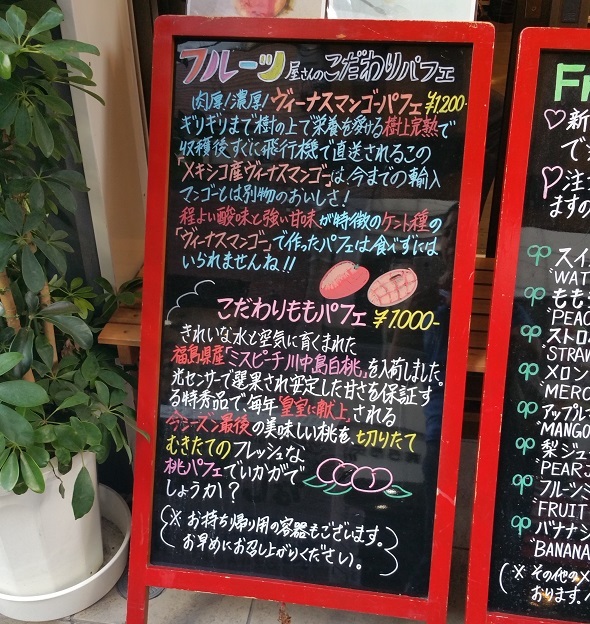 フルーツ屋さんのこだわりパフェ
肉厚!濃厚!ヴィーナスマンゴーパフェ ¥1200-
ギリギリまで樹の上で栄養を受ける樹上完熟で
収穫後すぐに飛行機で直送されるこの
「メキシコ産ヴィーナスマンゴー」は今までの輸入
マンゴーとは別物のおいしさ!
程よい酸味と強い甘味が特徴のケント種の
「ヴィーナスマンゴー」で作ったパフェは食べずには
いられませんね!!
こだわりももパフェ ¥1.000-
きれいな水と空気に育くまれた
福島県産「ミスピーチ川中島白桃」を入荷しました。
光センサーで選果され安定した甘さを保証す
る特秀品で毎年皇室に献上される
今シーズン最後の美味しい桃を、切りたて
むきたてのフレッシュな
桃パフェでいかがで
しょうか?
(※ お持ち帰り用の容器もございます。
お早めにお召し上がりください。)
Fr
♡新
で
♡注
ますの
スイ
"WAT
もも
"PEAC
ストロ
"STRAW
メロン
"MERO
アップルマ
"MANGO
梨ジュ
"PEAR J
フルーツミ
"FRUIT
バナナジ
"BANANA
(※ その他のメ
おります。